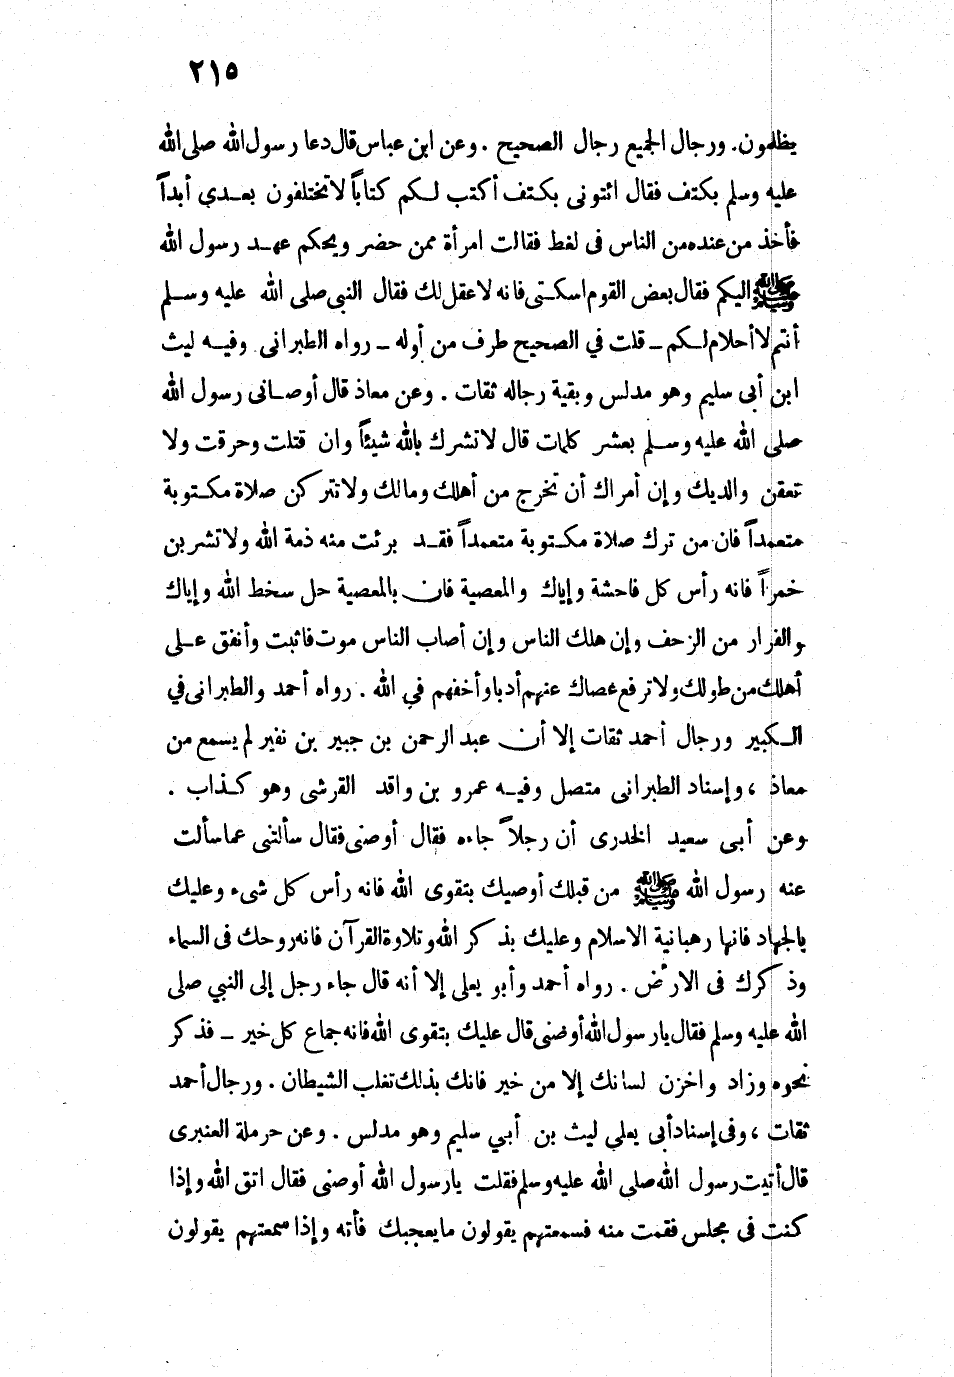 ٢١٥
يظلمون. ورجال الجميع رجال الصحيح. وعن ابن عباس قال دعا رسول الله صلى الله
عليه وسلم بكتف فقال ائتونى بكتف أكتب لكم كتاباً لا تختلفون بعدي أبداً
فأخذ من عنده من الناس فى لغط فقالت امرأة ممن حضر ويحكم عهد رسول الله
ﷺ اليكم فقال بعض القوم اسكتى فانه لا عقل لك فقال النبى صلى الله عليه وسلم
أنتم لا أحلام لكم ـ قلت في الصحيح طرف من أوله ـ رواه الطبرانى وفيه ليث
ابن أبى سليم وهو مدلس وبقية رجاله ثقات. وعن معاذ قال أوصانى رسول الله
صلى الله عليه وسلم بعشر كلمات قال لا تشرك بالله شيئاً وان قتلت وحرقت ولا
تعقن والديك وإن أمراك أن تخرج من أهلك ومالك ولا تتركن صلاة مكتوبة
متعمداً فان من ترك صلاة مكتوبة متعمداً فقد برئت منه ذمة الله ولا تشربن
خمراً فانه رأس كل فاحشة وإياك والمعصية فان بالمعصية حل سخط الله وإياك
والفرار من الزحف وإن هلك الناس وإن أصاب الناس موت فاثبت وأنفق على
أهلك من طولك ولا ترفع عصاك عنهم أدبا وأخفهم في الله. رواه أحمد والطبرانى في
الكبير ورجال أحمد ثقات إلا أن عبد الرحمن بن جبير بن نفير لم يسمع من
معاذ، وإسناد الطبرانى متصل وفيه عمرو بن واقد القرشى وهو كذاب.
وعن أبى سعيد الخدرى أن رجلاً جاءه فقال أوصنى فقال سألتنى عما سألت
عنه رسول الله ﷺ من قبلك أوصيك بتقوى الله فانه رأس كل شىء وعليك
بالجهاد فانها رهبانية الاسلام وعليك بذكر الله وتلاوة القرآن فانه روحك فى السماء
وذكرك فى الارض. رواه أحمد وأبو يعلى إلا أنه قال جاء رجل إلى النبي صلى
الله عليه وسلم فقال يارسول الله أوصنى قال عليك بتقوى الله فانه جماع كل خير ـ فذكر
نحوه وزاد واخزن لسانك إلا من خير فانك بذلك تغلب الشيطان. ورجال أحمد
ثقات، وفى إسناد أبى يعلي ليث بن أبي سليم وهو مدلس. وعن حرملة العنبرى
قال أتيت رسول الله صلى الله عليه وسلم فقلت يارسول الله أوصنى فقال اتق الله وإذا
كنت فى مجلس فقمت منه فسمعتهم يقولون ما يعجبك فأته وإذا سمعتهم يقولون